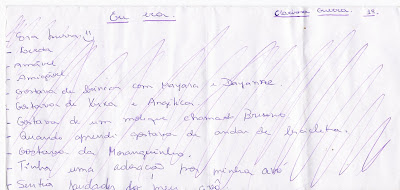 Eu era.
- Era burra
- Amável
- Amigável
- Gostava de brincar com Mayara e Dayanne
- Gostava de Kyra e Angélica
- Gostava de um moleque chamado Brunno.
- Quando aprendi gostava de andar de bicicleta.
- Gostava da Moranguinho.
- Tinha uma adoração por minha avó
- Sentia saudades do meu avô